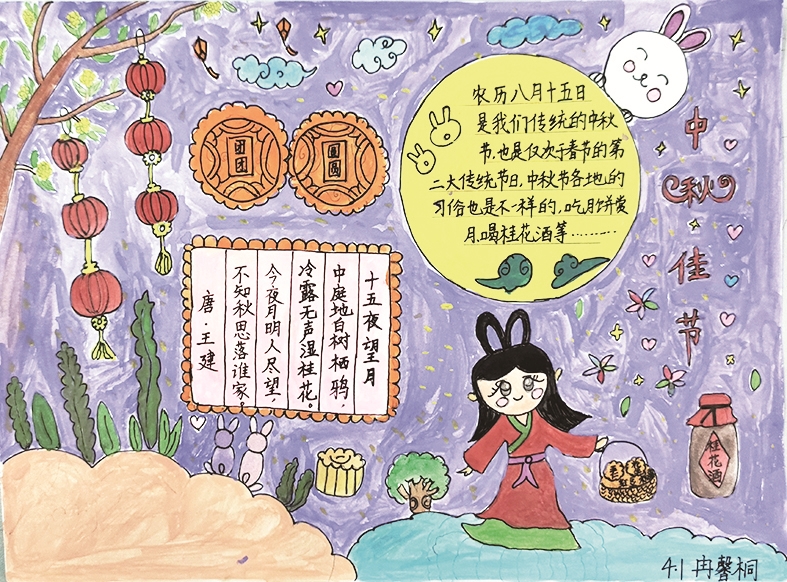 团团
圆圆
农历八月十五日
是我们传统的中秋
节,也是仅次于春节的第
二大传统节日,中秋节各地的
习俗也是不一样的,吃月饼赏
月,喝桂花酒等………
中秋佳节
十五夜望月
中庭地白树栖鸦,
冷露无声湿桂花。
今夜月明人尽望,
不知秋思落谁家。
唐·王建
桂花酒
4.1 冉馨桐